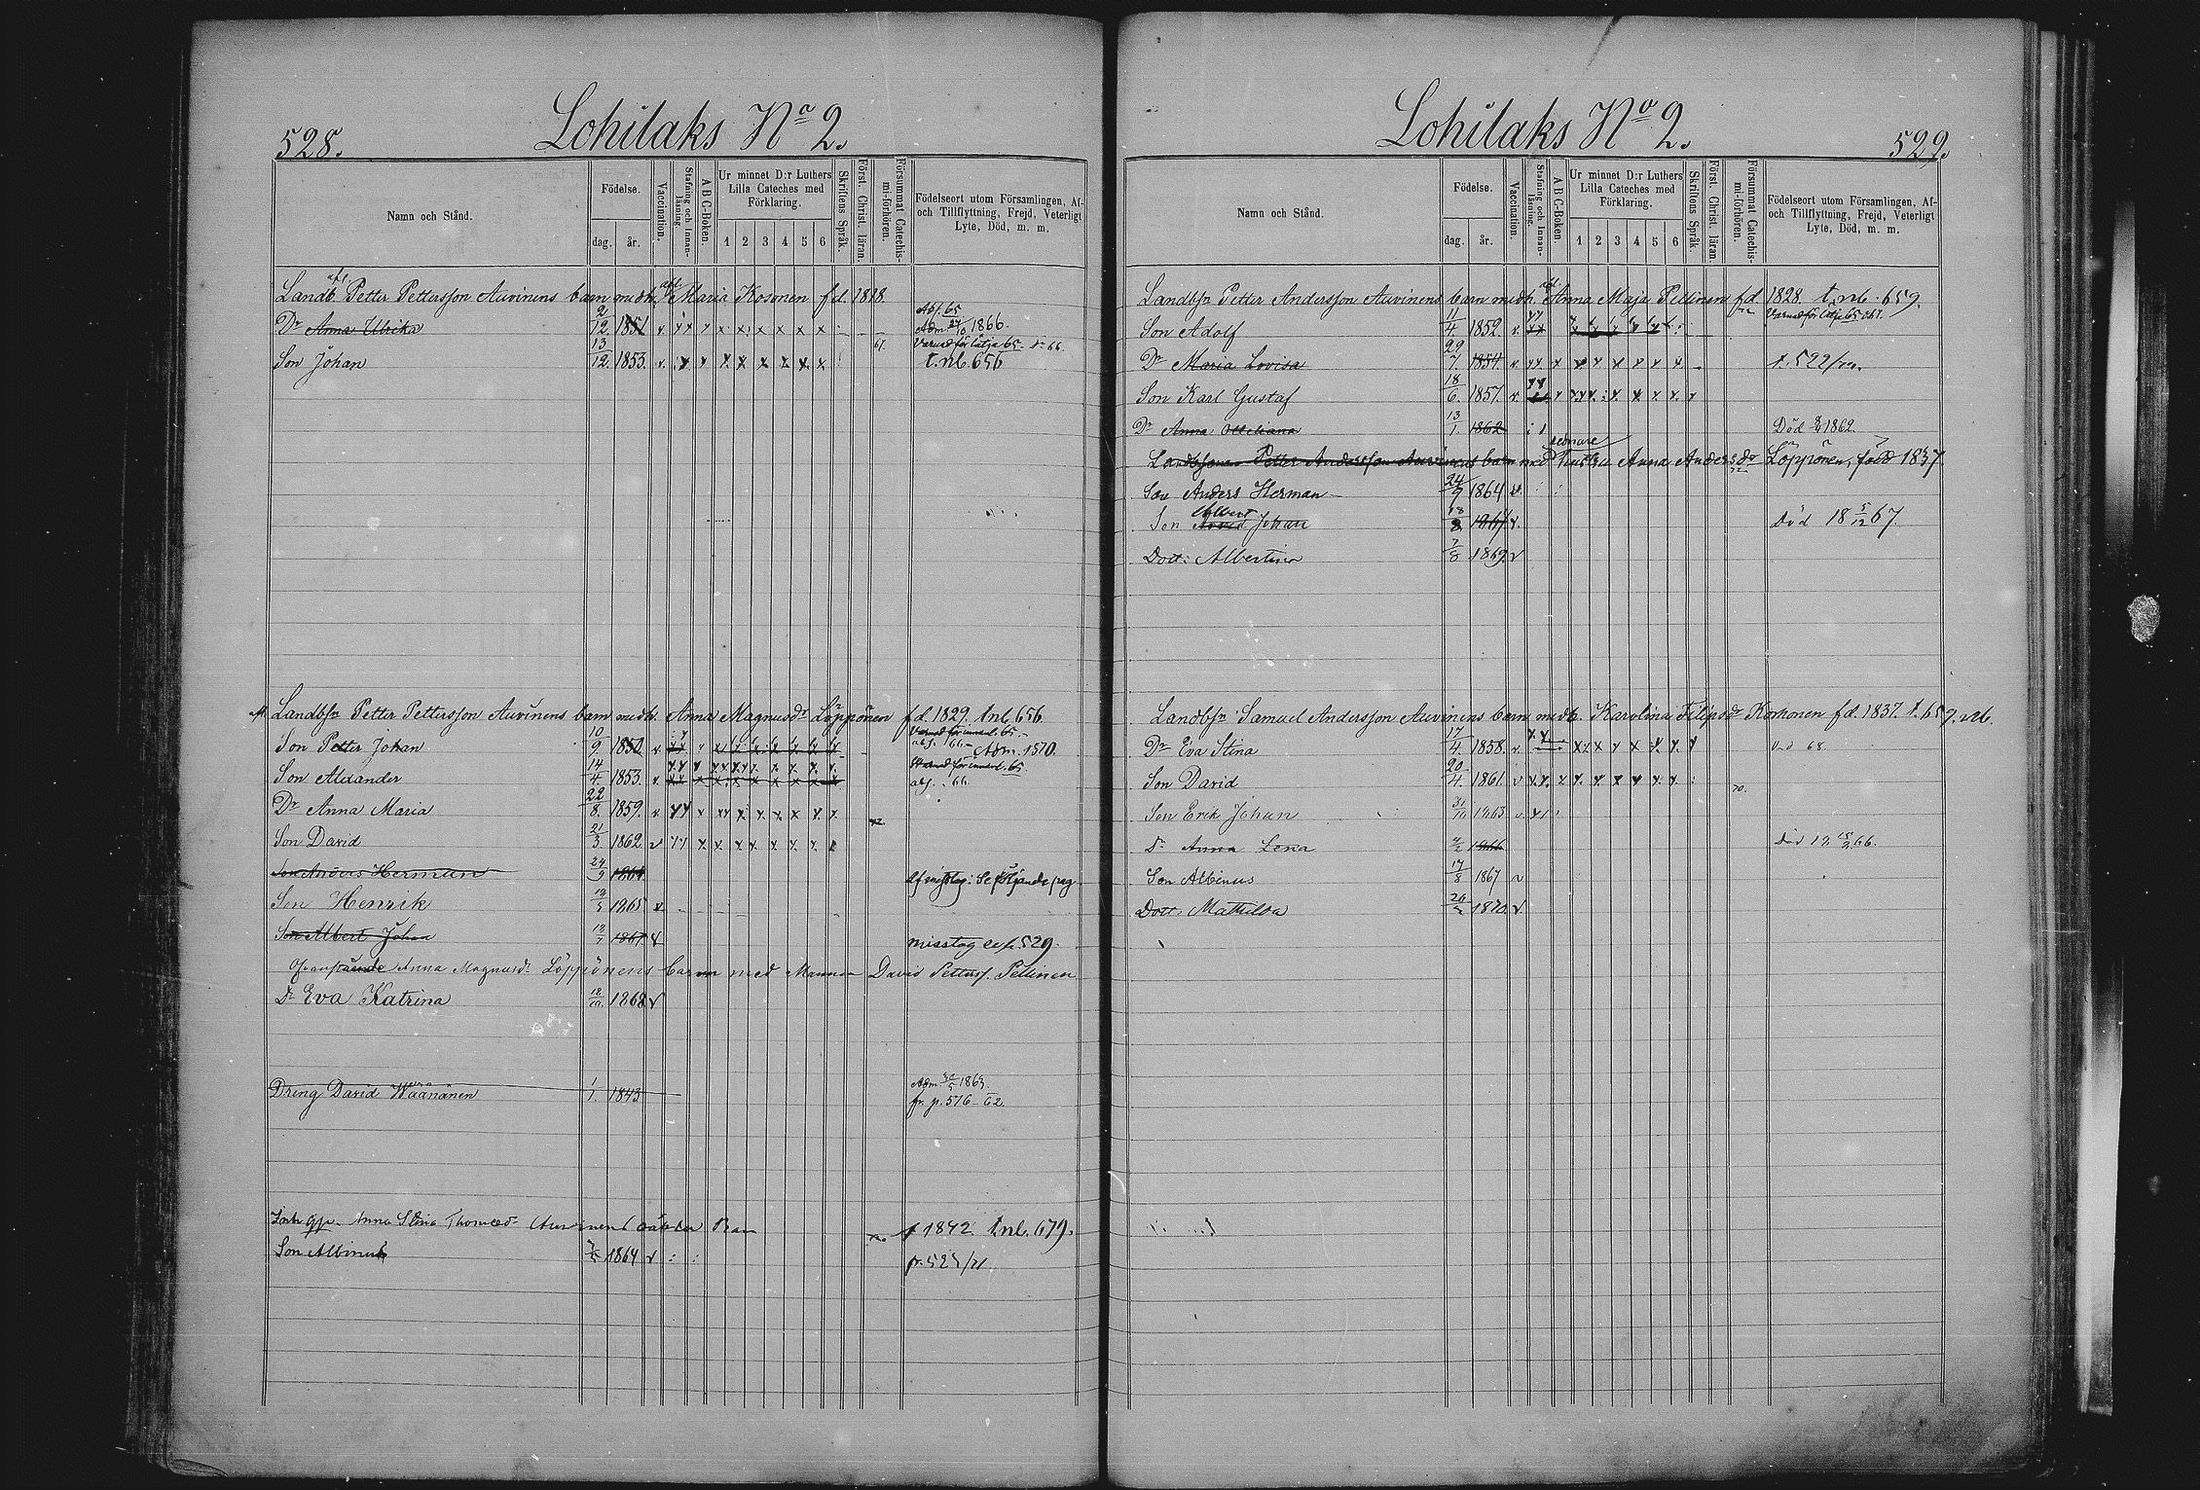 528.
Lohilaks No 2.
Namn och Stånd.
Födelse.
dag.
år.
Vaccination.
Stafning och Innanläsning.
A B C-Boken.
Ur minnet D:r Luthers Lilla Cateches med Förklaring.
1 2 3 4 5 6
Skriftens Språk.
Först. Christ. läran.
Försummat Catechismi-förhören.
Födelseort utom Församlingen, Af- och Tillflyttning, Frejd, Veterligt Lyte, Död, m. m.
Landb. Petter Pettersson Auvinens barn med h. Maria Kosonen f.d. 1818.
Dr Anna Ulrika 2/12. 1851 Adm. 1866.
Son Johan 13/12. 1853. t. nb. 656
Landbfn Petter Pettersson Auvinens barn med h. Anna Magnusdr Löppönen f.d. 1829. t.nb. 656.
Son Petter Johan 10/9. 1850. Adm. 1870.
Son Alexander 14/4. 1853.
Dr Anna Maria 22/8. 1859.
Son David 21/3. 1862
Son Anders Herman 24/9 1864 Af misstag: Se följande pag
Son Henrik 1865
Son Albert Johan 1867 misstag se p. 529.
Anna Magnusdr Löppönens barn med Mannen David Petterss. Pellinen
Dr Eva Katrina 1868
Dreng David Waananen 1/1. 1843 Adm. 1863. fr. p. 576
Anna Stina Thomasdr Auvinens oäkta Barn f 1842. t.nb. 679.
Son Albinus 1864
Lohilaks No 2.
529.
Namn och Stånd.
Födelse.
dag.
år.
Vaccination.
Stafning och Innanläsning.
A B C-Boken.
Ur minnet D:r Luthers Lilla Cateches med Förklaring.
1 2 3 4 5 6
Skriftens Språk.
Först. Christ. läran.
Försummat Catechismi-förhören.
Födelseort utom Församlingen, Af- och Tillflyttning, Frejd, Veterligt Lyte, Död, m. m.
Landbfn Petter Andersson Auvinens barn med h. Anna Maja Pellinen f.d. 1828. t. nb. 659.
Son Adolf 11/4. 1852.
Dr Maria Lovisa 29/7. 1854.
Son Karl Gustaf 18/6. 1857.
Dr Anna 13/1. 1862 Död 1862.
Landbonen Petter Andersson Auvinens barn med sednare hustru Anna Andersdr Löppönen, född 1837
Son Anders Herman 24/9 1864
Son Albert Johan 18 1867 Död 18 5/12 67.
Dott: Albertina 7/8 1869
Landbfn Samuel Andersson Auvinens barn med h. Karolina Filipsdr Korhonen f.d. 1837. t. 659. nb.
Dr Eva Stina 17/4. 1858.
Son David 20/4. 1861.
Son Erik Johan 31/10 1863
Dr Anna Lena 1866
Son Albinus 17/8 1867
Dott: Mathilda 1870